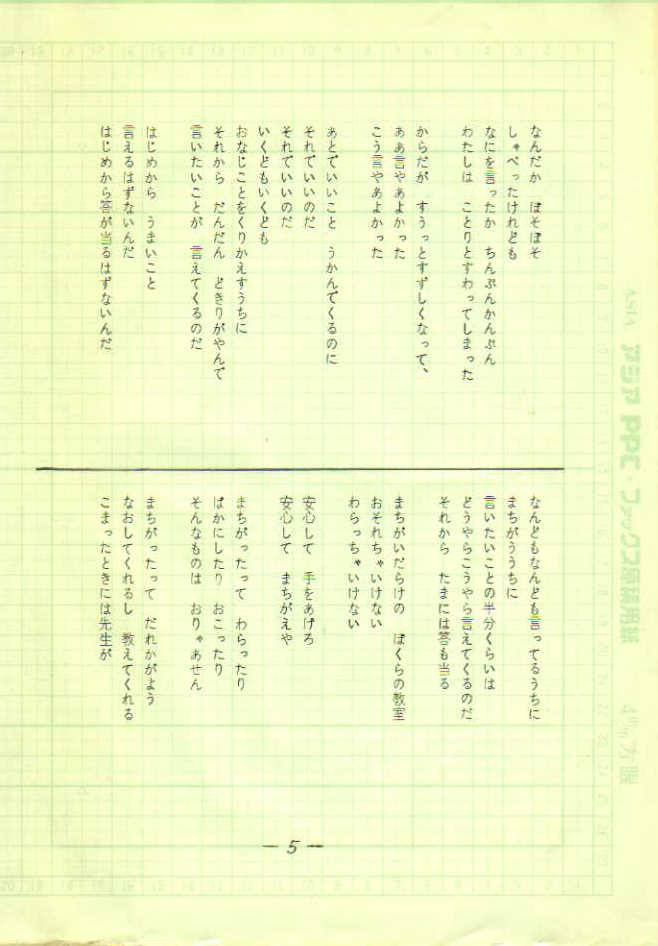 なんだか　ぼそぼそ
しゃべったけれども
なにを言ったか　ちんぷんかんぷん
わたしは　ことりとすわってしまった
からだが　すうっとすずしくなって、
ああ言やあよかった
こう言やあよかった
あとでいいこと　うかんでくるのに
それでいいのだ
それでいいのだ
いくどもいくども
おなじことをくりかえすうちに
それから　だんだん　どきりがやんで
言いたいことが　言えてくるのだ
はじめから　うまいこと
言えるはずないんだ
はじめから答が当るはずないんだ
なんどもなんども言ってるうちに
まちがううちに
言いたいことの半分くらいは
どうやらこうやら言えてくるのだ
それから　たまには答も当る
まちがいだらけの　ぼくらの教室
おそれちゃいけない
わらっちゃいけない
安心して　手をあげろ
安心して　まちがえや
まちがったって　わらったり
ばかにしたり　おこったり
そんなものは　おりゃあせん
まちがったって　だれかがよう
なおしてくれるし　教えてくれる
こまったときには先生が
― 5 ―
ASIA アジア PPC・ファックス原稿用紙　4㎜方眼